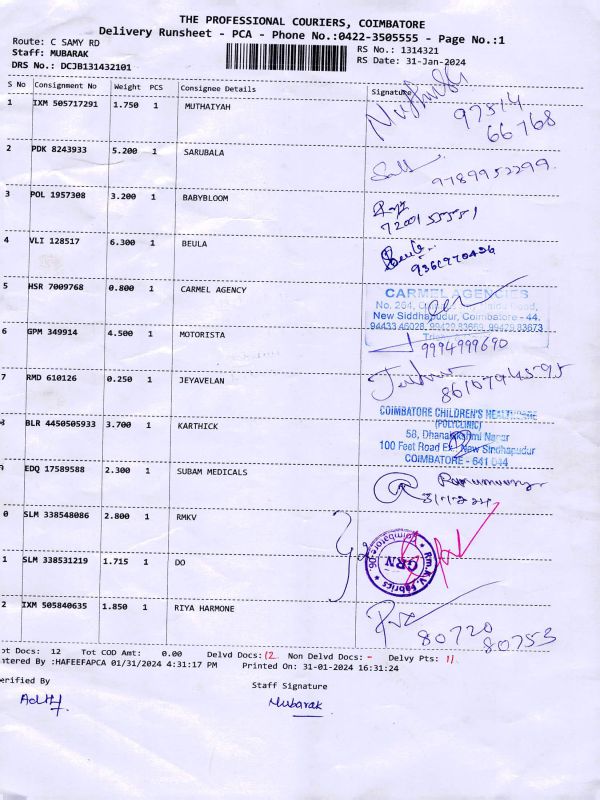 THE PROFESSIONAL COURIERS, COIMBATORE
Delivery Runsheet - PCA - Phone No.:0422-3505555 - Page No.:1
Route: C SAMY RD
RS No.: 1314321
Staff: MUBARAK
RS Date: 31-Jan-2024
DRS No.: DCJB131432101
S No Consignment No Weight PCS Consignee Details Signature
1 IXM 505717291 1.750 1 MUTHAIYAH
97514
66768
2 PDK 8243933 5.200 1 SARUBALA
9789952299
3 POL 1957308 3.200 1 BABYBLOOM
4 VLI 128517 6.300 1 BEULA Beula
5 HSR 7009768 0.800 1 CARMEL AGENCY
CARMEL AGENCIES
No. 264,
New Siddhapudur, Coimbatore - 44.
6 GPM 349914 4.500 1 MOTORISTA 9994999690
7 RMD 610126 0.250 1 JEYAVELAN
8 BLR 4450505933 3.700 1 KARTHICK
COIMBATORE CHILDREN'S HEALTHCARE
(POLYCLINIC)
58, Dhanalakshmi Nagar
100 Feet Road Ex, New Sindhapudur
COIMBATORE - 641 044
EDQ 17589588 2.300 1 SUBAM MEDICALS
0 SLM 338548086 2.800 1 RMKV
Rm.K.V. Fabrics Coimbatore-06.
GRN
1 SLM 338531219 1.715 1 DO
2 IXM 505840635 1.850 1 RIYA HARMONE
80720
80753
ot Docs: 12 Tot COD Amt: 0.00 Delvd Docs: 12 Non Delvd Docs: - Delvy Pts: 11
ntered By :HAFEEFAPCA 01/31/2024 4:31:17 PM Printed On: 31-01-2024 16:31:24
erified By
Staff Signature
Mubarak